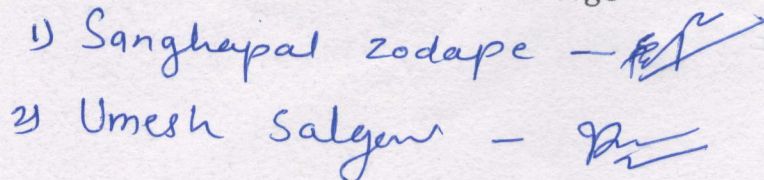 1) Sanghapal zodape -
2) Umesh Salgaw -